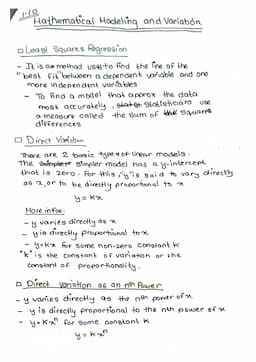 1.10
Mathematical Modeling and Variation
Least Squares Regression
- It is a method used to find the line of the
"best fit" between a dependent variable and one
more independent variables
- To find a model that approx the data
most accurately, statisticians use
a measure called the sum of the square
differences
Direct Variation
There are 2 basic types of linear models.
The simpler model has a y-intercept
that is zero. For this, y is said to vary directly
as x, or to be directly proportional to x
y = kx
More infos:
- y varies directly as x
- y is directly proportional to x
- y = kx for some non-zero constant k
"k" is the constant of variation or the
constant of proportionality.
Direct variation as an nth Power
- y varies directly as the nth power of x.
- y is directly proportional to the nth power of x
- y = kxⁿ for some constant k
y = kxⁿ